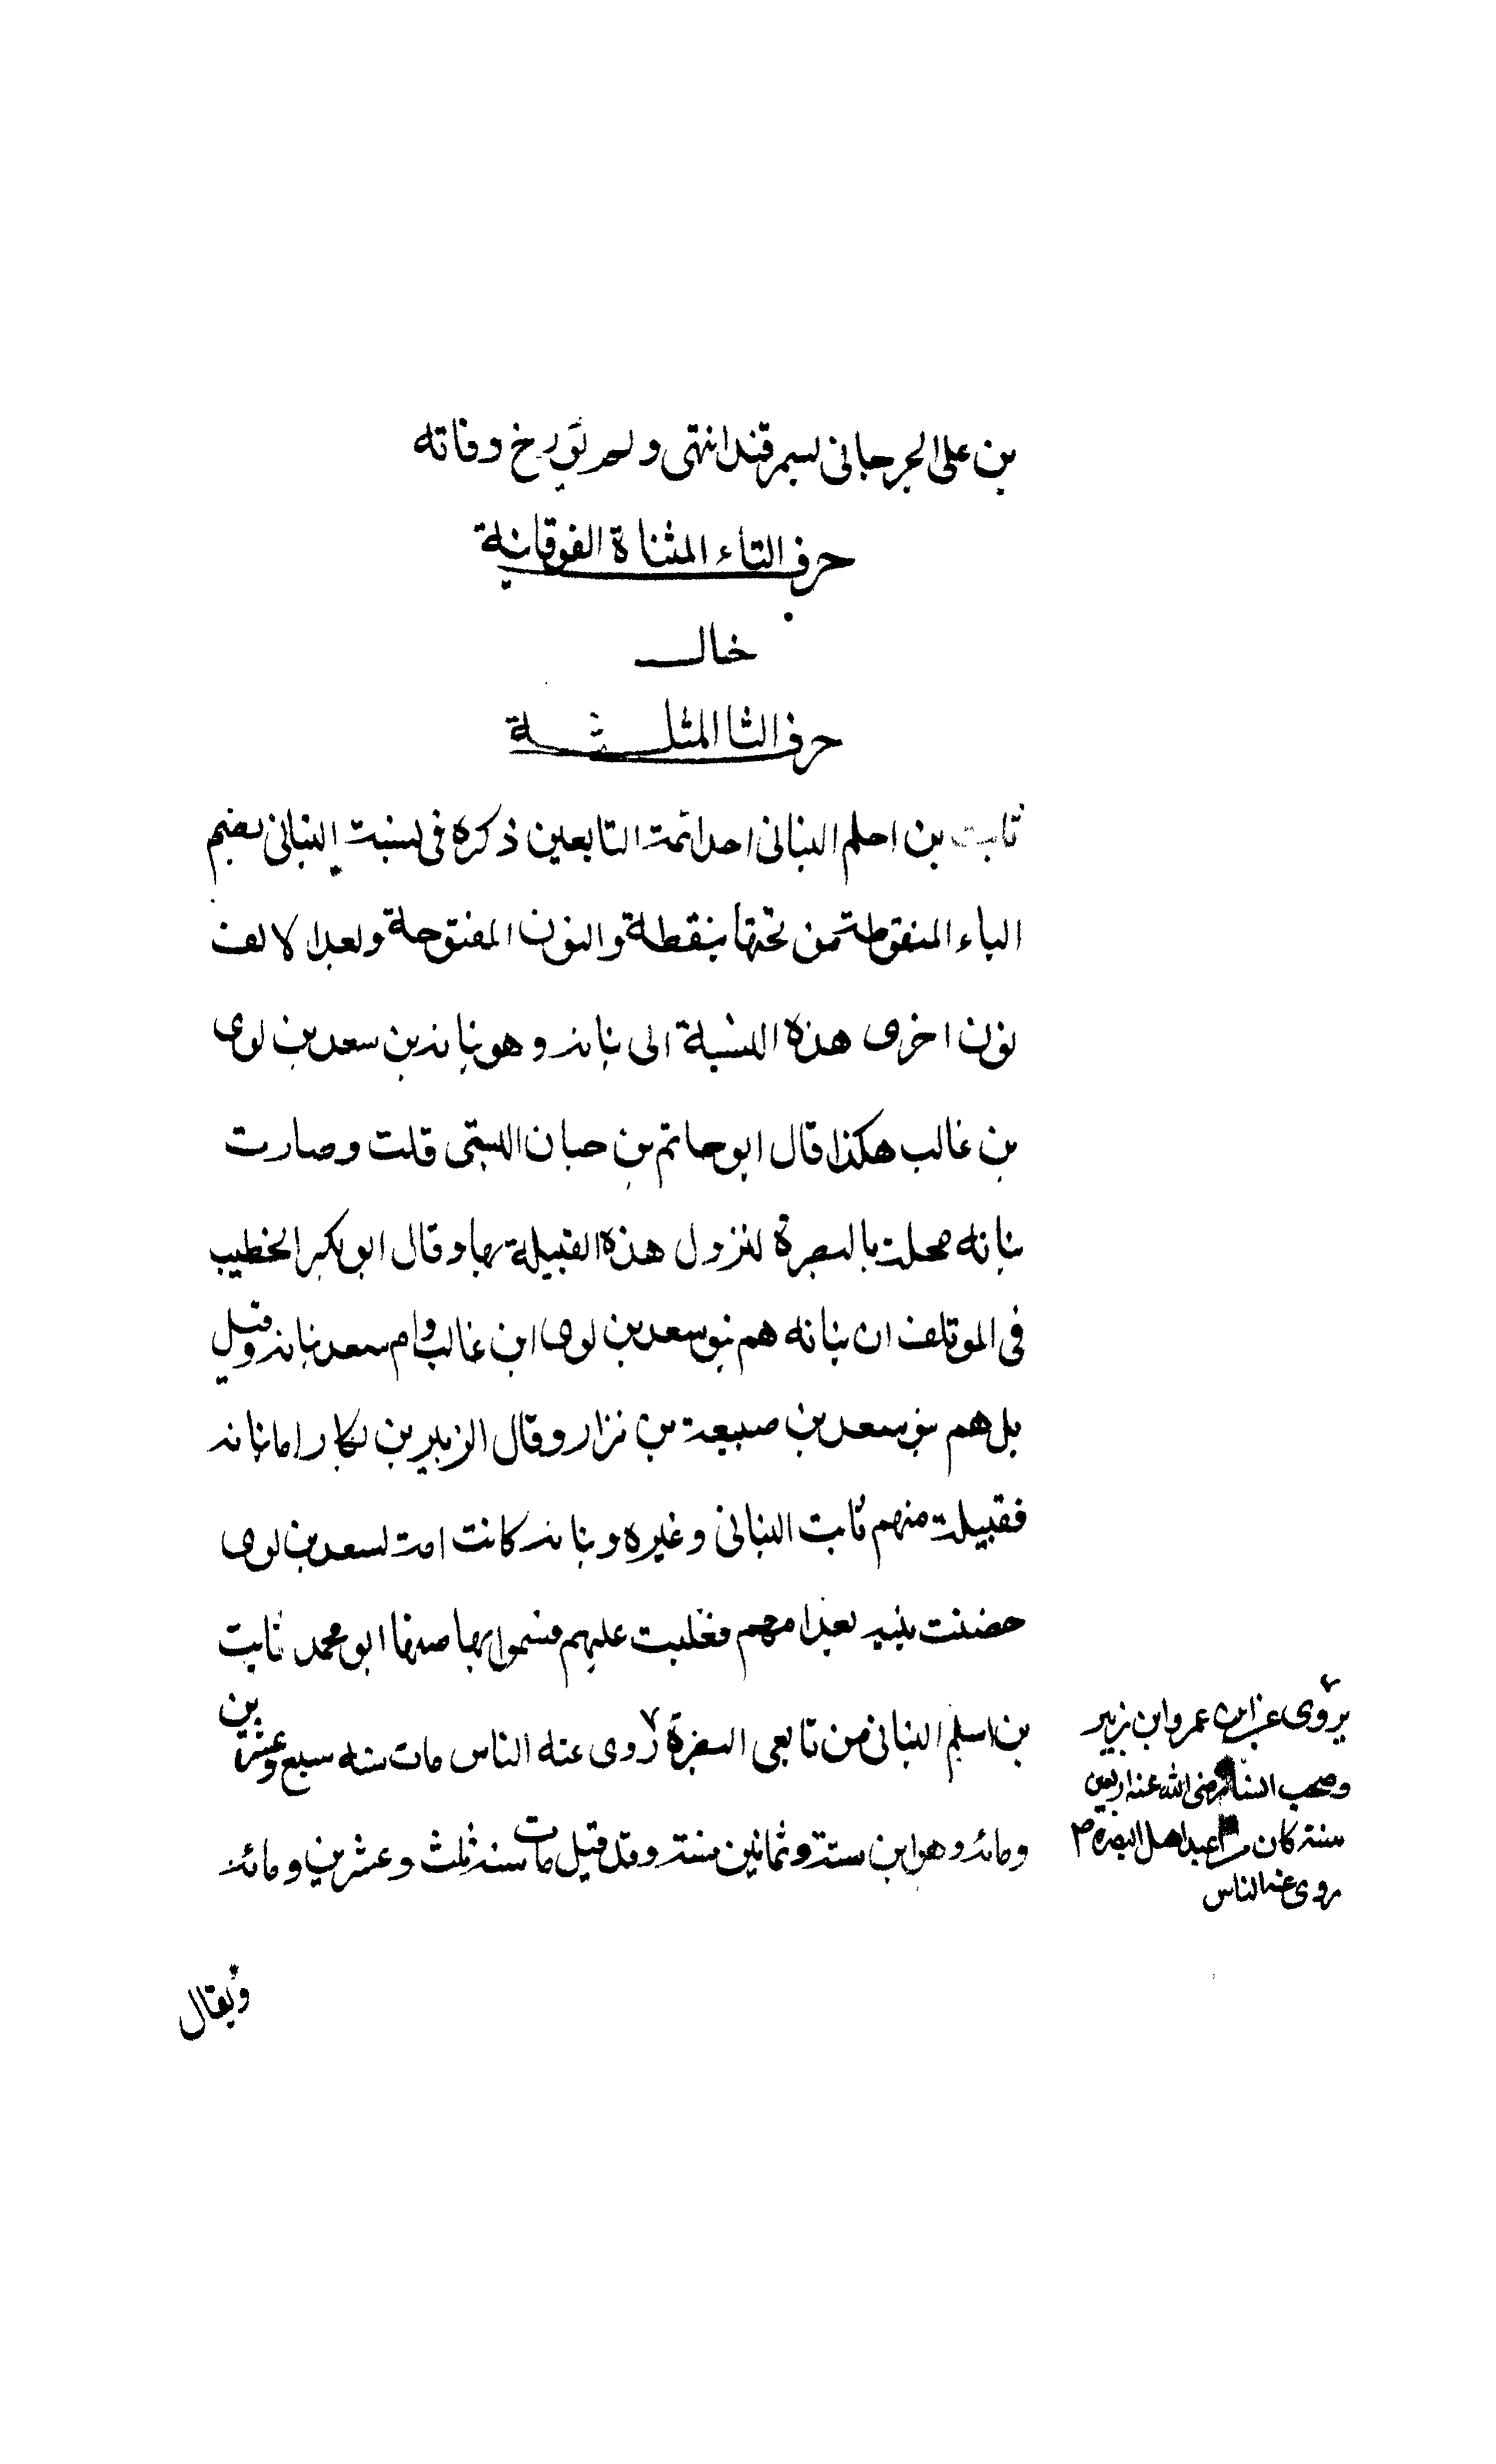 بن على الجرجانى بسمرقند انتهى ولم يورخ وفاته
حرف التاء المثناة الفوقانية
خال
حرف الثا المثلثة
ثابت بن احلم البنانى احد ائمة التابعين ذكره فى نسبة البنانى بضم
الباء المنقوطة من تحتها بنقطة والنون المفتوحة وبعد الالف
نون اخرى هذه النسبة الى بنانه وهو بنانه بن سعد بن لوى
بن غالب هكذا قال ابو حاتم بن حبان البستى قلت وصارت
بنانه محلة بالبصرة لنزول هذه القبيلة بها وقال ابو بكر الخطيب
فى الموتلف ان بنانه هم بنو سعد بن لوى ابن غالب وام سعد بنانه وقيل
بل هم بنو سعد بن ضبيعة بن نزار وقال الزبير بن بكار اما بنانه
فقبيلة منهم ثابت البنانى وغيره وبنانه كانت امة لسعد بن لوى
حضنت بنيه بعد امهم فغلبت عليهم فسموا بها منها ابو محمد ثابت
بن اسلم البنانى من تابعى البصرة روى عنه الناس مات سنه سبع وعشرين
ومائه وهو ابن ستة وثمانين سنة وقد قيل مات سنه ثلث وعشرين ومائه
يروى عن ابن عمر وابن زبير
وصحب انسا رضى الله عنه اربعين
سنة كان من اعبد اهل البصرة
روى عنه الناس
ويقال